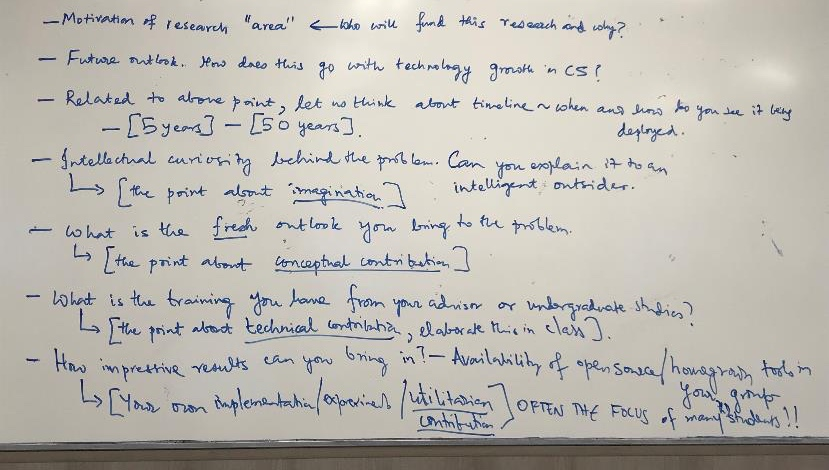 - Motivation of research "area" ← Who will fund this research and why?
- Future outlook. How does this go with technology growth in CS?
- Related to above point, let us think about timeline ~ when and how do you see it being deployed.
- [5 years] - [50 years].
- Intellectual curiosity behind the problem. Can you explain it to an intelligent outsider.
↳ [the point about imagination]
- What is the fresh outlook you bring to the problem.
↳ [the point about conceptual contribution]
- What is the training you have from your advisor or undergraduate studies?
↳ [the point about technical contribution, elaborate this in class].
- How impressive results can you bring in? - Availability of open source/homegrown tools in your group
↳ [Your own implementation/experiments/utilitarian contribution] OFTEN THE FOCUS of many students!!